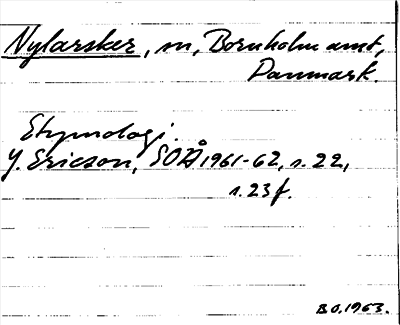 Nylarsker, sn, Bornholms amt,
Danmark.
Etymologi.
Y. Ericson, SOÅ 1961-62, s. 22,
s. 23 f.
B O. 1963.